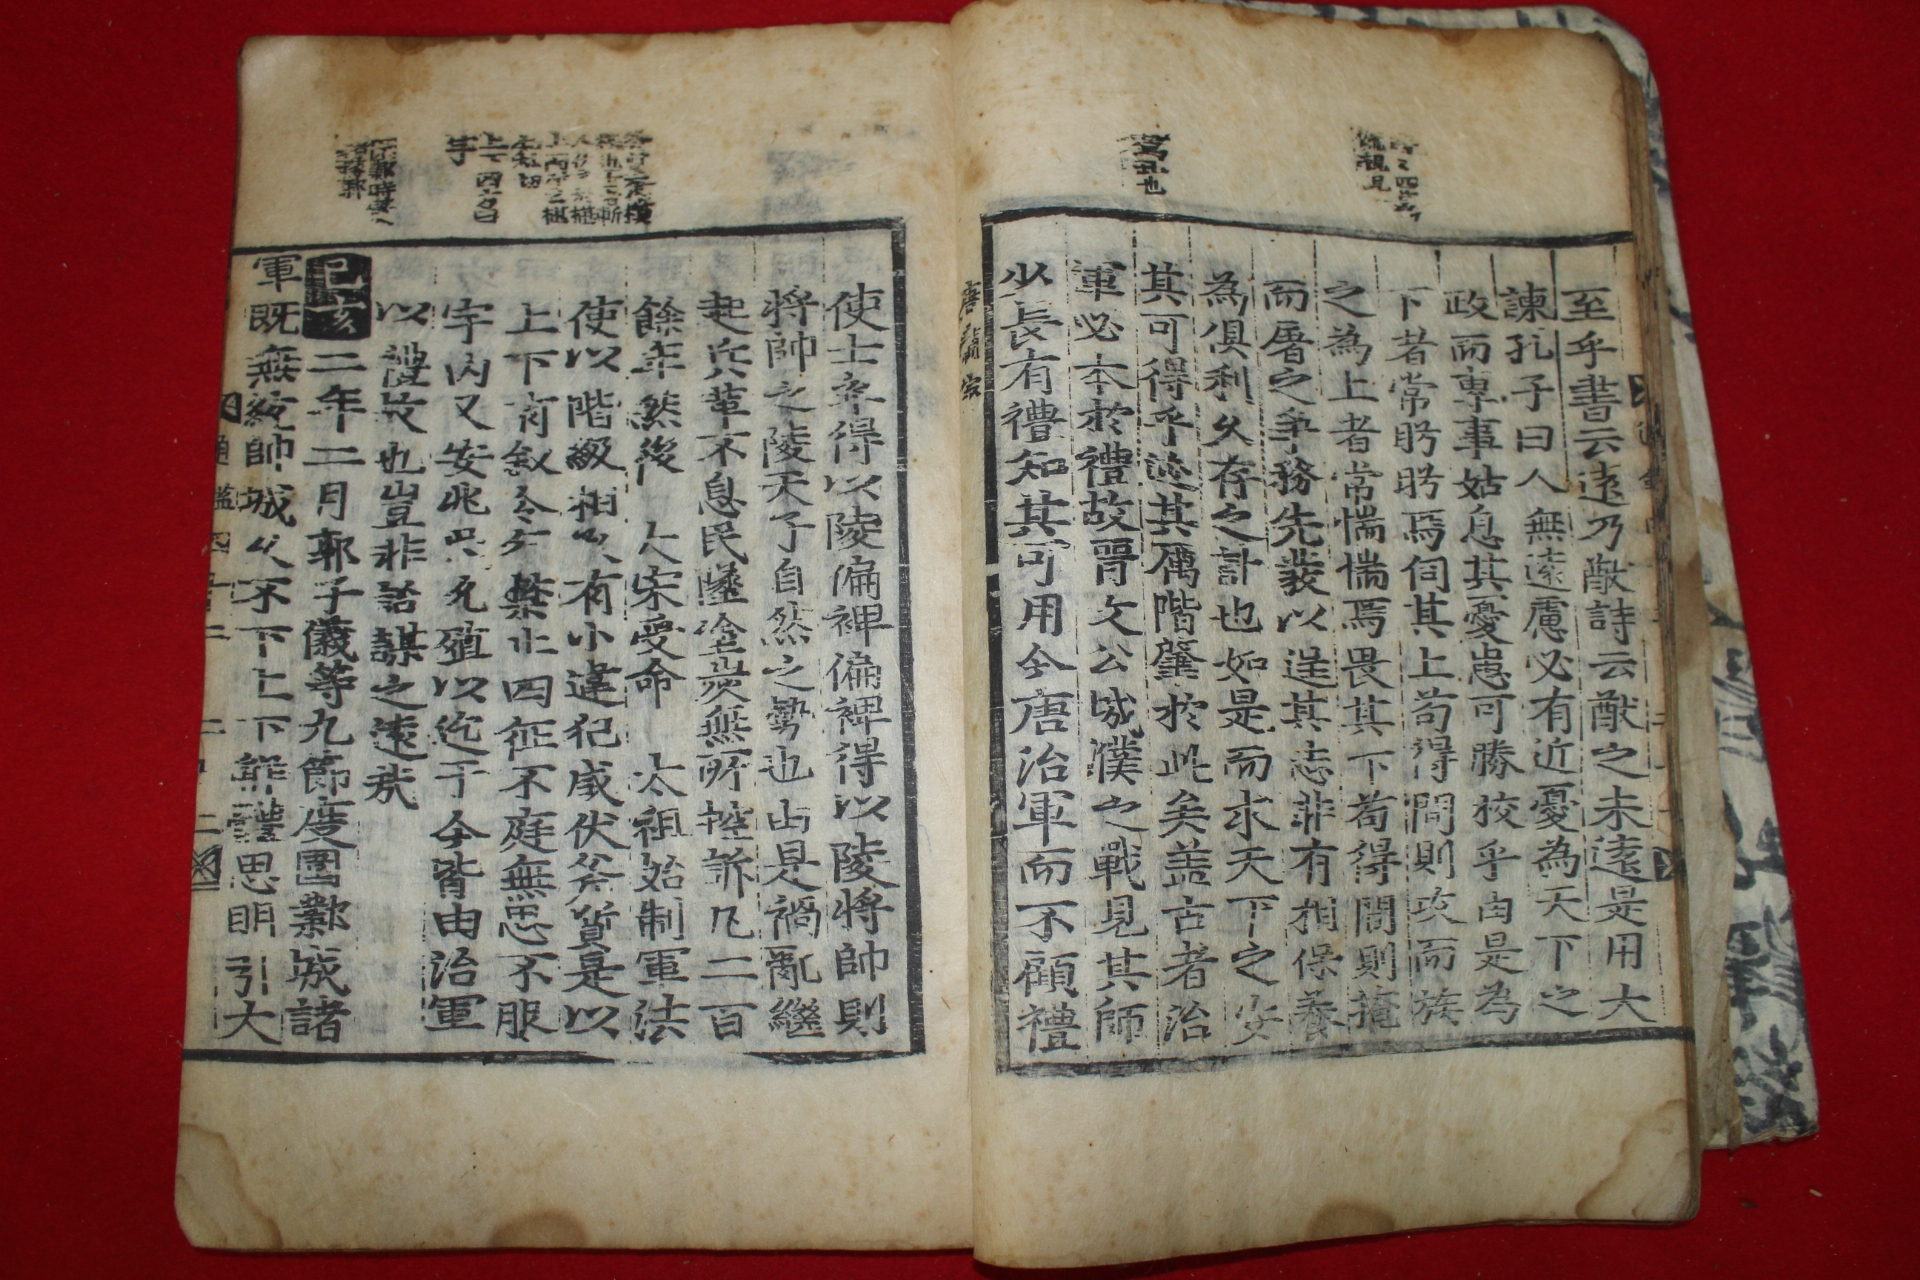 至乎書云遠乃猷詩云猷之未遠是用大
諫孔子曰人無遠慮必有近憂為天下之
政而專事姑息其憂患可勝校乎由是為
下者常眄眄焉伺其上苟得間則攻而族
之為上者常惴惴焉畏其下苟得間則掩
而屠之爭務先發以逞其志非有相保養
為俱利久存之計也如是而求天下之安
其可得乎迹其厲階肇於此矣盖古者治
軍必本於禮故晋文公城濮之戰見其師
少長有禮知其可用今唐治軍而不顧禮
唐肅宗
使士卒得以陵偏裨偏裨得以陵將帥則
將帥之陵天子自然之勢也由是禍亂繼
起兵革不息民墜塗炭無所控訴凡二百
餘年然後 大宋受命 太祖始制軍法
使以階級相承小有違犯咸伏斧質是以
上下有叙令行禁止四征不庭無思不服
宇内乂安兆民允殖以迄于今皆由治軍
以禮故也豈非詒謀之遠哉
己亥二年二月郭子儀等九節度圍鄴城諸
軍既無統帥城久不下上下解體思明引大